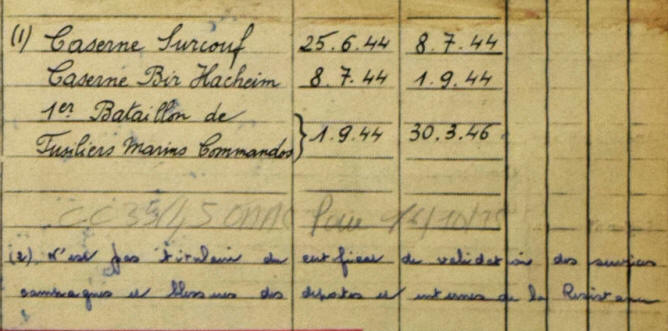 (1) Caserne Surcouf 25.6.44 8.7.44
Caserne Bir Hacheim 8.7.44 1.9.44
1er Bataillon de
Fusiliers Marins Commandos } 1.9.44 30.3.46
Paris
(2) N'est pas titulaire du certificat de validation des services
campagnes et blessures des déportés et internés de la Résistance